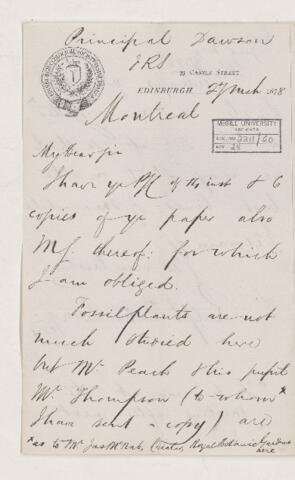 Principal Dawson
FRS
22 CASTLE STREET,
EDINBURGH, 27 Mch 1878
Montreal
McGILL UNIVERSITY
ARCHIVES
ACC. NO. 2211/60
My Dear Sir
I have yr of inst & 6
copies of yr paper also
MS. thereof: for which
I am obliged.
Fossil plants are not
much studied here
but Mr Peach & his pupil
Mr Thompson (to whom *
I have sent a copy) are
* as to Mr Jas McNab, Curator, Royal Botanic Gardens
here